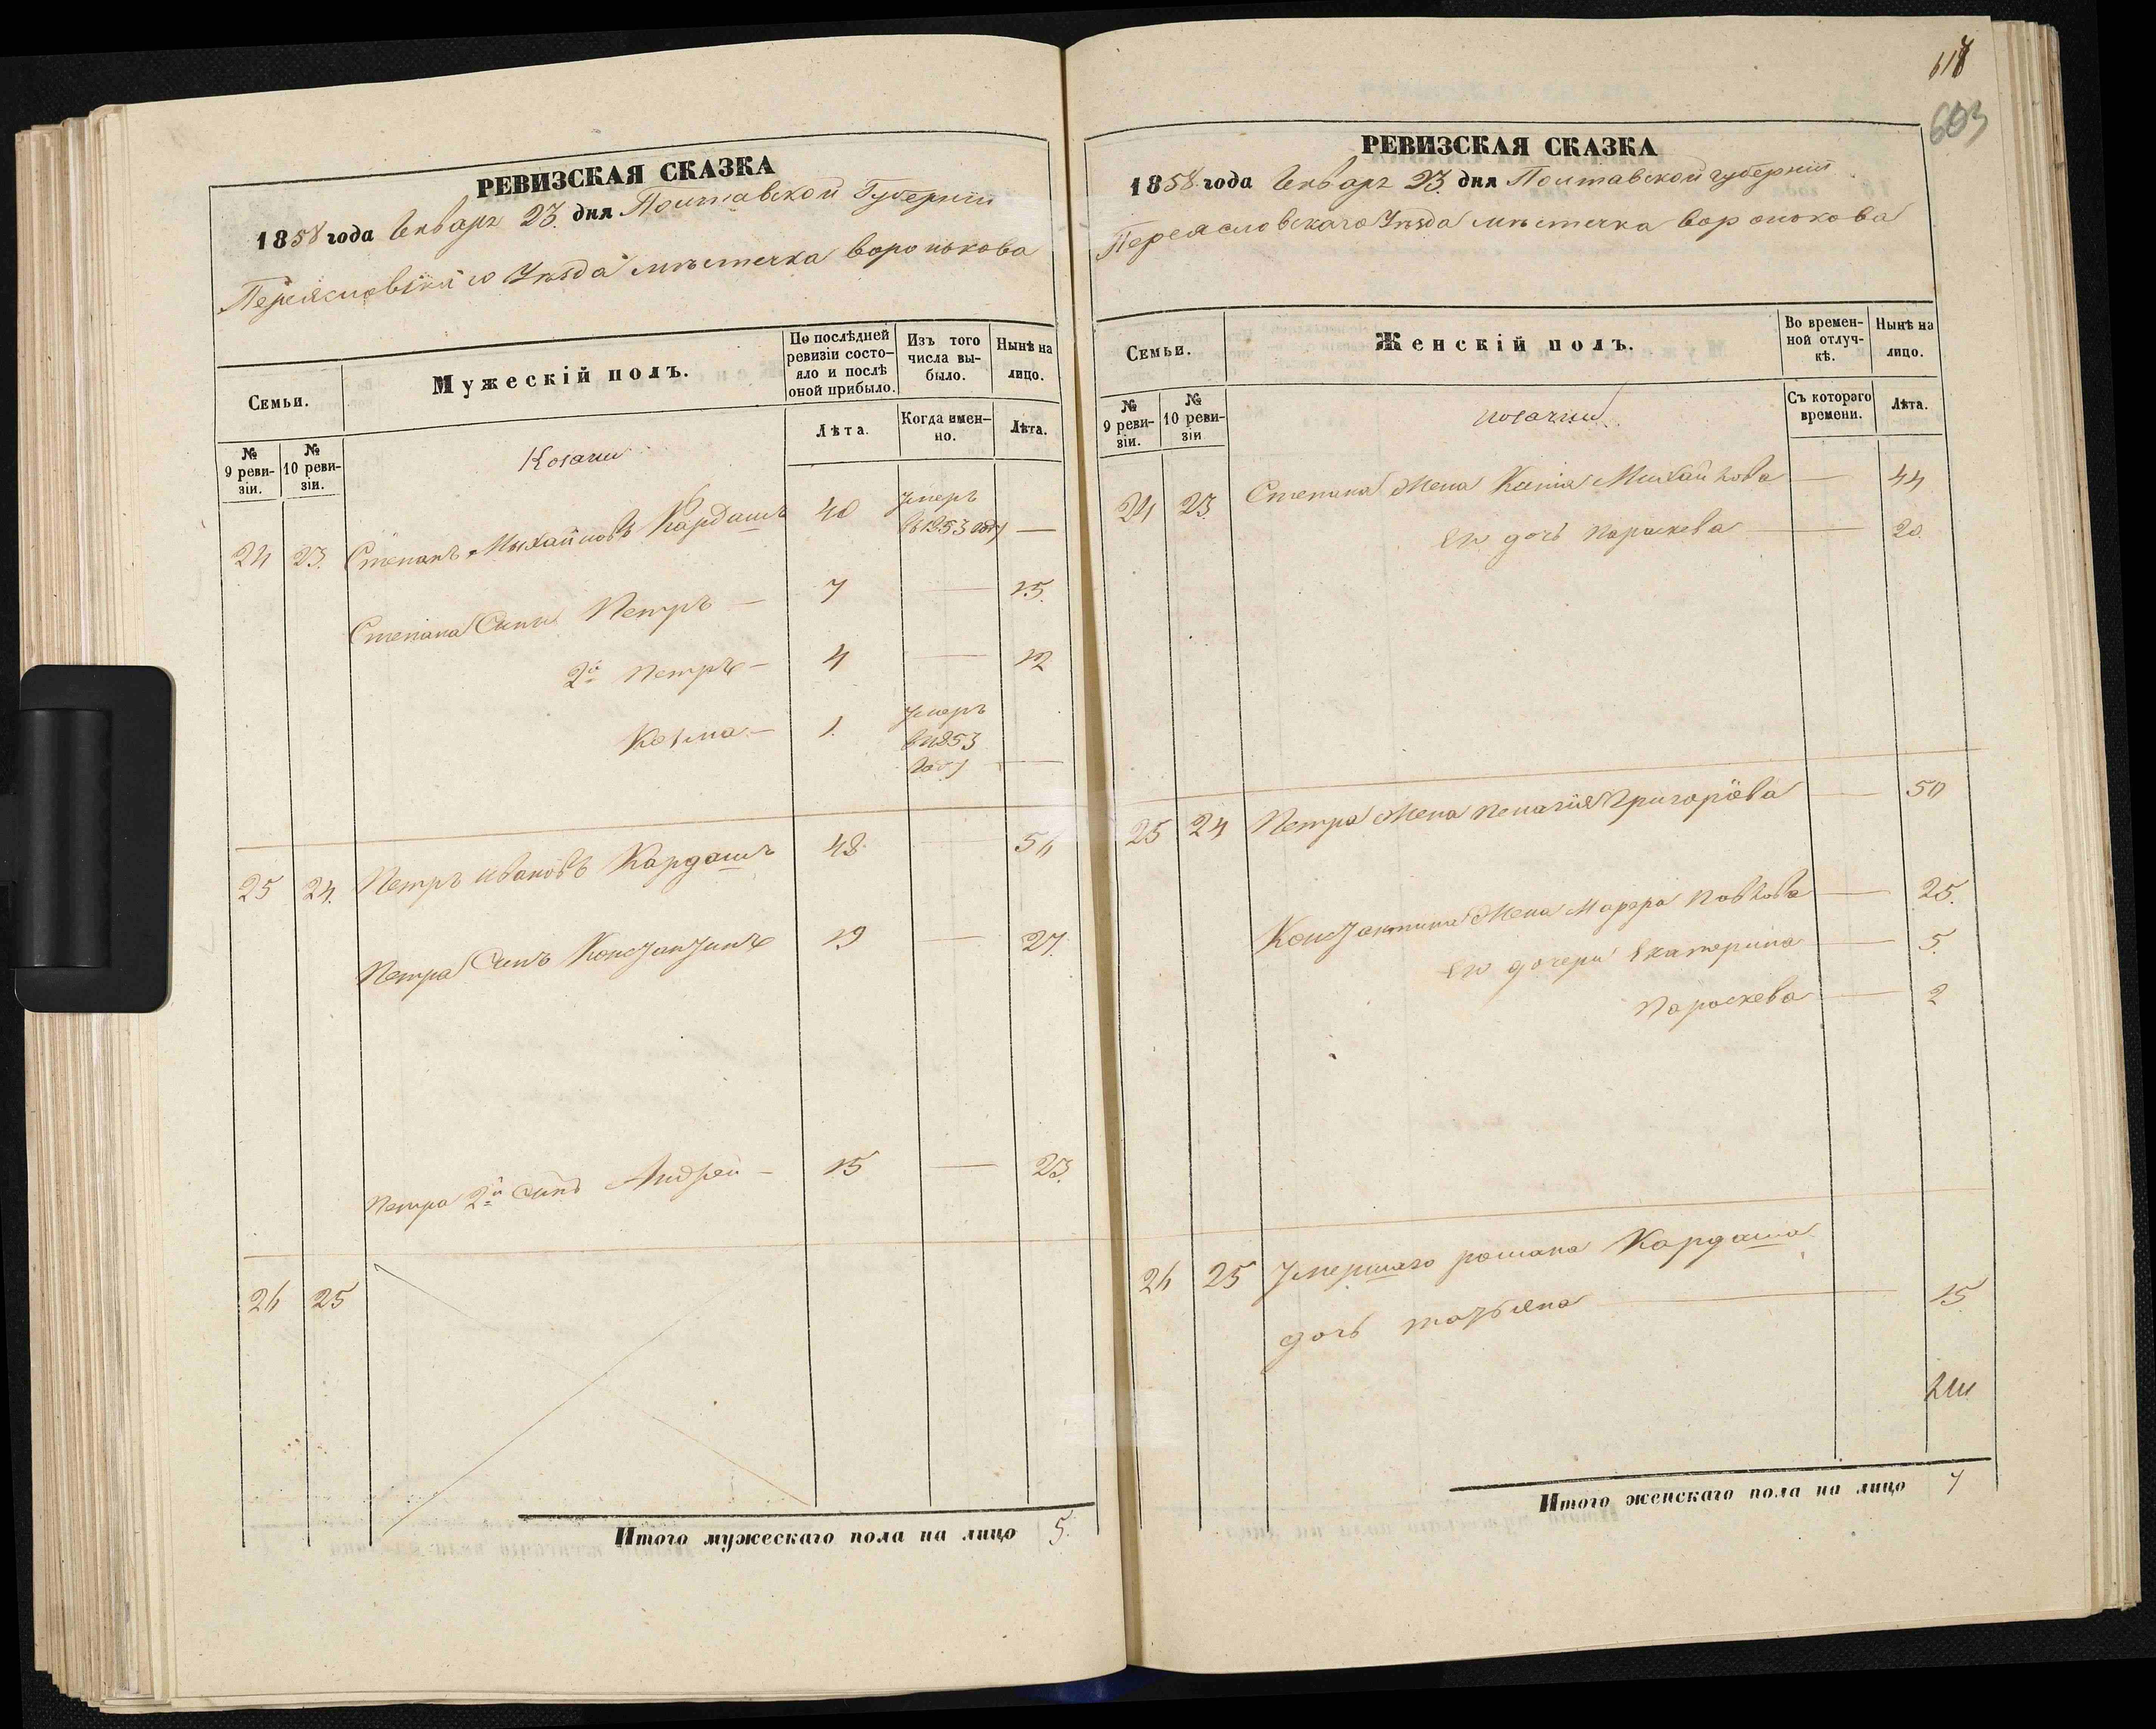 РЕВИЗСКАЯ СКАЗКА
1858 года Генваря 23. дня Полтавской Губерніи
Переясловскаго Уѣзда мѣстечка воронькова
Семьи.
Мужескій полъ.
По послѣдней ревизіи состояло и послѣ оной прибыло.
Изъ того числа выбыло.
Нынѣ на лицо.
№ 9 ревизіи.
№ 10 ревизіи.
Козаки
Лѣта.
Когда именно.
Лѣта.
24 23. Степанъ Михайловъ Кардашъ 40 Умеръ в 1853 году —
Степана Сынъ Петръ — 7 — 15.
2й Петръ — 4 — 12
Козма — 1. Умеръ в 1853 году —
25 24. Петръ Ивановъ Кардашъ 48. — 56
Петра Сынъ Константинъ 19 — 27.
Петра 2й Сынъ Андрей — 15 — 23.
26 25
Итого мужескаго пола на лицо 5.
618
603
РЕВИЗСКАЯ СКАЗКА
1858 года Генваря 23. дня Полтавской губерніи
Переясловскаго Уѣзда мѣстечка воронькова
Семьи.
Женскій полъ.
Во временной отлучкѣ.
Нынѣ на лицо.
№ 9 ревизіи.
№ 10 ревизіи
козачки
Съ котораго времени.
Лѣта.
24 23. Степана Жена Ксенія Михайлова — 44
Его дочь Параскева — 20.
25 24 Петра Жена Пелагія Григорьева — 50
Константина Жена Марфа Павлова — 25.
Его дочери Екатерина — 5.
Параскева — 2
26 25 Умершаго романа Кардаша
дочь татьяна — 15
Итого женскаго пола на лицо 7